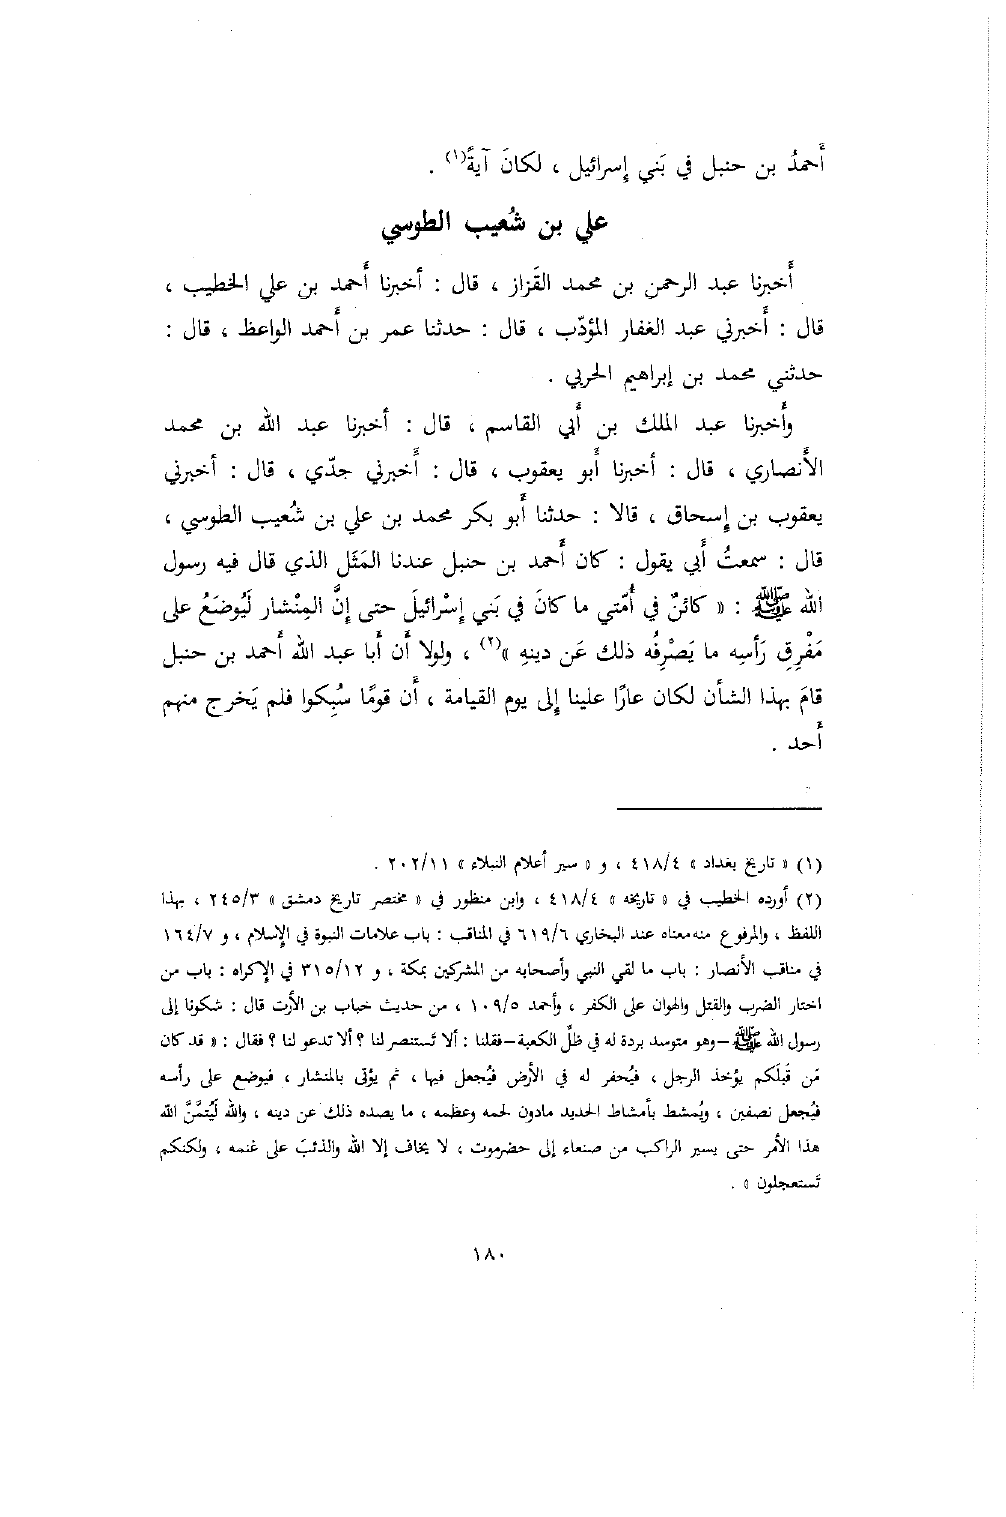 أَحمدُ بن حنبل في بَني إسرائيل ، لكانَ آيةً(١) .
علي بن شُعيب الطوسي
أَخبرنا عبد الرحمن بن محمد القَزاز ، قال : أخبرنا أَحمد بن علي الخطيب ،
قال : أَخبرني عبد الغفار المؤدّب ، قال : حدثنا عمر بن أَحمد الواعظ ، قال :
حدثني محمد بن إبراهيم الحربي .
وأَخبرنا عبد الملك بن أَبي القاسم ، قال : أخبرنا عبد الله بن محمد
الأَنصاري ، قال : أخبرنا أَبو يعقوب ، قال : أَخبرني جدّي ، قال : أخبرني
يعقوب بن إسحاق ، قالا : حدثنا أَبو بكر محمد بن علي بن شُعيب الطوسي ،
قال : سمعتُ أَبي يقول : كان أَحمد بن حنبل عندنا المَثَل الذي قال فيه رسول
الله ﷺ : « كائنٌ في أُمّتي ما كانَ في بَني إسْرائيلَ حتى إنَّ المِنْشار لَيُوضَعُ على
مَفْرِقِ رَأسِه ما يَصْرِفُه ذلك عَن دينهِ »(٢) ، ولولا أَن أبا عبد الله أَحمد بن حنبل
قامَ بهذا الشأن لكان عارًا علينا إلى يوم القيامة ، أَن قومًا سُبِكوا فلم يَخرج منهم
أَحد .
(١) « تاريخ بغداد » ٤١٨/٤ ، و « سير أعلام النبلاء » ٢٠٢/١١ .
(٢) أورده الخطيب في « تاريخه » ٤١٨/٤ ، وابن منظور في « مختصر تاريخ دمشق » ٢٤٥/٣ ، بهذا
اللفظ ، والمرفوع منه معناه عند البخاري ٦١٩/٦ في المناقب : باب علامات النبوة في الإسلام ، و ١٦٤/٧
في مناقب الأنصار : باب ما لقي النبي وأصحابه من المشركين بمكة ، و ٣١٥/١٢ في الإكراه : باب من
اختار الضرب والقتل والهوان على الكفر ، وأحمد ١٠٩/٥ ، من حديث خباب بن الأرت قال : شكونا إلى
رسول الله ﷺ –وهو متوسد بردة له في ظلّ الكعبة–فقلنا : ألا تَستنصر لنا ؟ ألا تدعو لنا ؟ فقال : « قد كان
مَن قَبلَكم يؤخذ الرجل ، فيُحفر له في الأرض فيُجعل فيها ، ثم يؤتى بالمنشار ، فيوضع على رأسه
فيُجعل نصفين ، ويُمشط بأمشاط الحديد مادون لحمه وعظمه ، ما يصده ذلك عن دينه ، والله لَيُتمَّنَّ الله
هذا الأمر حتى يسير الراكب من صنعاء إلى حضرموت ، لا يخاف إلا الله والذئبَ على غنمه ، ولكنكم
تَستعجلون » .
١٨٠